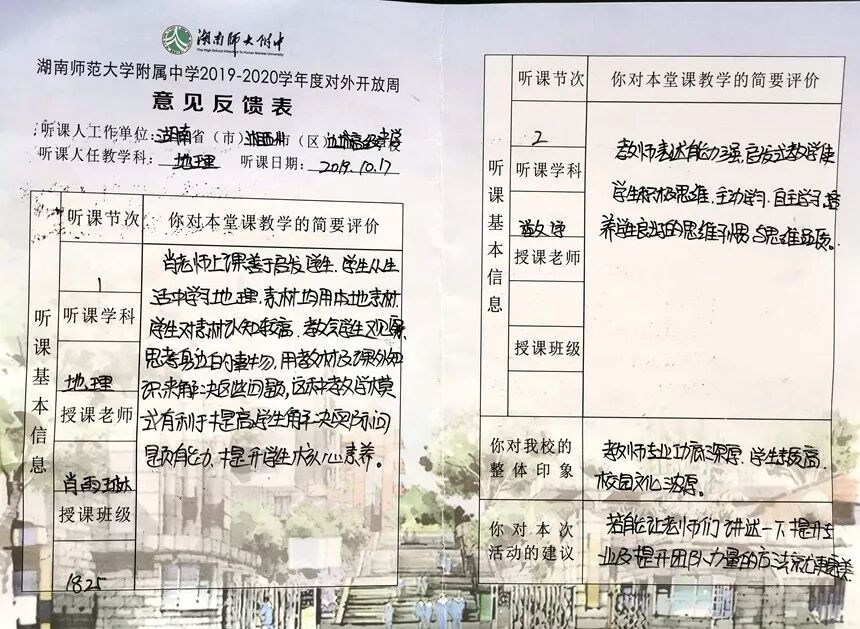 湖南师大附中
The High School Attached To Hunan Normal University
湖南师范大学附属中学2019-2020学年度对外开放周
意见反馈表
听课人工作单位:湖南省(市)湘西州市(区)
听课人任教学科:地理 听课日期:2019.10.17
听课基本信息
听课节次
1
听课学科
地理
授课老师
肖雨琳
授课班级
1825
你对本堂课教学的简要评价
肖老师上课善于启发学生,学生从生
活中学习地理,素材均用本地素材,
学生对素材认知较高,教会学生观察
思考身边的事物,用教材及课外知
识来解决这些问题,这种教学模
式有利于提高学生解决实际问
题能力,提升学生核心素养。
听课基本信息
听课节次
2
听课学科
数学
授课老师
授课班级
你对本堂课教学的简要评价
教师表达能力强,启发式教学使
学生积极思维,主动学习,自主学习,培
养学生良好的思维习惯与思维品质。
你对我校的
整体印象
教师专业功底深厚,学生素质高,
校园文化浓厚。
你对本次
活动的建议
若能让老师们讲述一下提升专
业及提升团队力量的方法就更完美